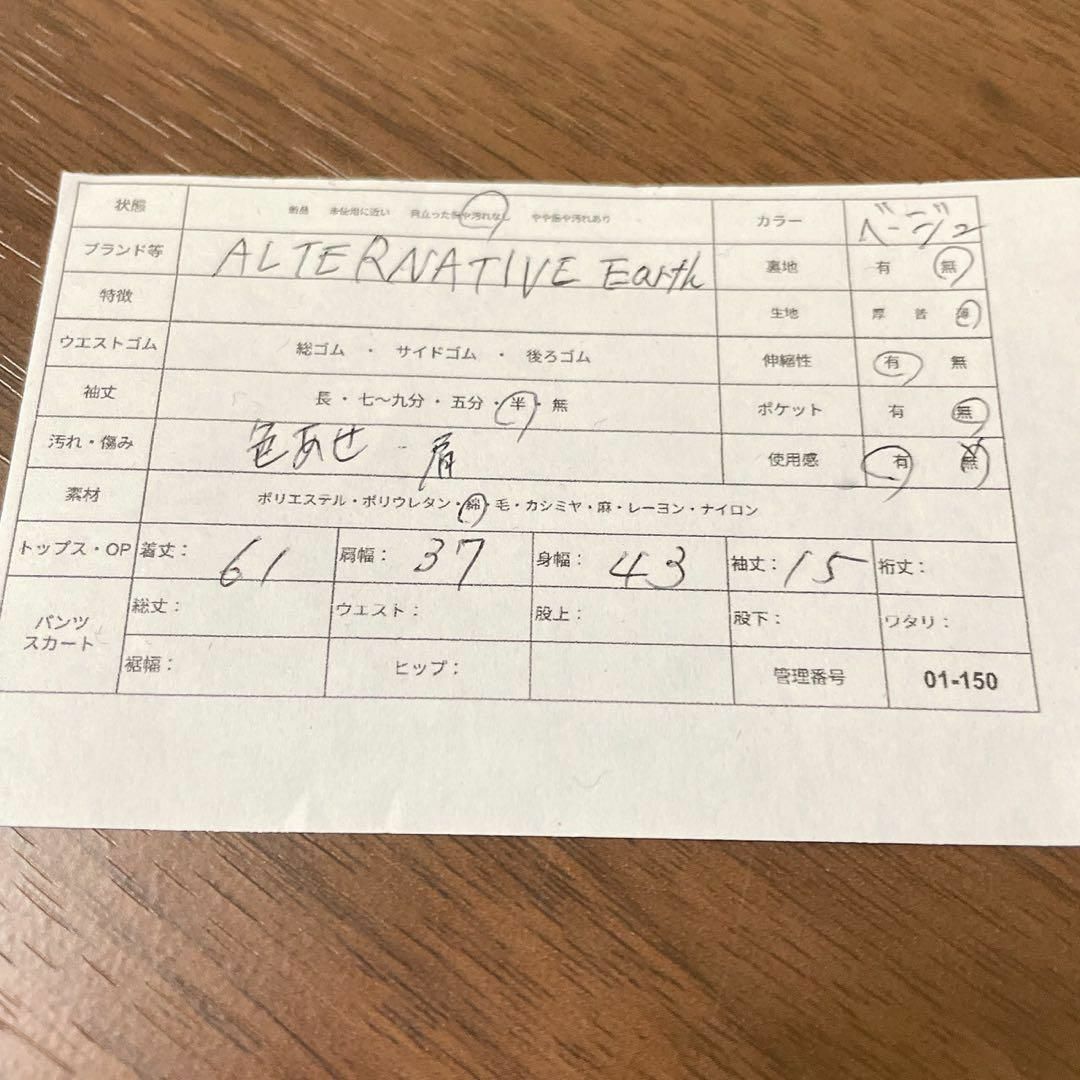 状態 新品 未使用に近い 目立った傷や汚れなし やや傷や汚れあり カラー ベージュ
ブランド等 ALTERNATIVE Earth 裏地 有 無
特徴 生地 厚 普 薄
ウエストゴム 総ゴム ・ サイドゴム ・ 後ろゴム 伸縮性 有 無
袖丈 長・七〜九分・五分・半・無 ポケット 有 無
汚れ・傷み 色あせ 肩 使用感 有 無
素材 ポリエステル・ポリウレタン・綿・毛・カシミヤ・麻・レーヨン・ナイロン
トップス・OP 着丈: 61 肩幅: 37 身幅: 43 袖丈: 15 裄丈:
パンツ スカート 総丈: ウエスト: 股上: 股下: ワタリ:
裾幅: ヒップ: 管理番号 01-150